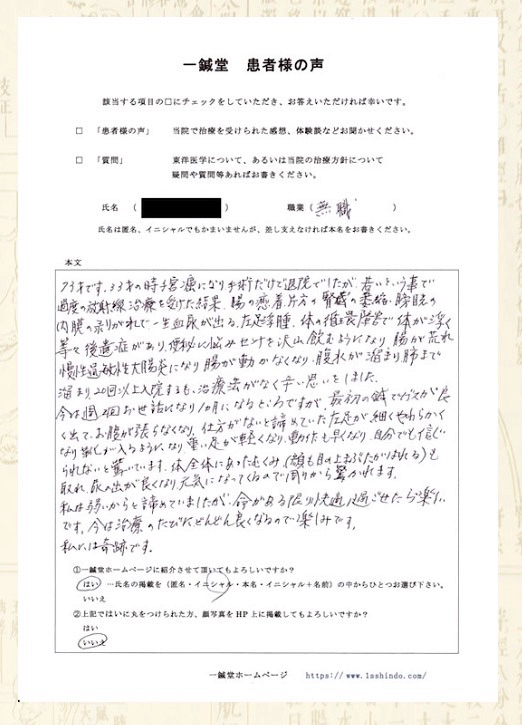 一鍼堂　患者様の声
該当する項目の□にチェックをしていただき、お答えいただければ幸いです。
□　「患者様の声」　当院で治療を受けられた感想、体験談などお聞かせください。
□　「質問」　東洋医学について、あるいは当院の治療方針について
疑問や質問等あればお書きください。
氏名　（　　　　）　　職業（　無職　）
氏名は匿名、イニシャルでもかまいませんが、差し支えなければ本名をお書きください。
本文
73才です。33才の時子宮癌になり手術だけで退院でしたが、若いという事で
過度の放射線治療を受けた結果、腸の癒着片方の腎臓の萎縮、膀胱の
内膜の剥がれで一生血尿が出る、左足浮腫、体の椎障害で体が浮く
等々後遺症があり、便秘に悩みセンナを沢山飲むようになり腸が荒れ
慢性過敏性大腸炎になり腸が動かなくなり、腹水が溜まり肺まで
溜まり、20回以上入院するも、治療法がなく辛い思いをしました。
今は週2回お世話になり1ヶ月になるところですが、最初の鍼でガスが良
く出て、お腹が張らなくなり、仕方がないと諦めていた左足が細くやわらかく
なり力が入るようになり重い足が軽くなり、動作も早くなり、自分でも信じ
られないと驚いています。体全体にあったむくみ（顔も目の上まぶたがはれる）も
取れ、尿の出が良くなり、元気になってくるので周りから驚かれます。
私は弱いからと諦めていましたが、命がある限り快適に過ごせたら楽しい
です。今は治療のたびにどんどん良くなるので楽しみです。
私には奇跡です。
①一鍼堂ホームページに紹介させて頂いてもよろしいですか？
はい　…氏名の掲載を（匿名・イニシャル・本名・イニシャル＋名前）の中からひとつお選び下さい。
いいえ
②上記ではいに丸をつけられた方、顔写真をHP上に掲載してもよろしいですか？
はい
いいえ
一鍼堂ホームページ　https://www.1sshindo.com/